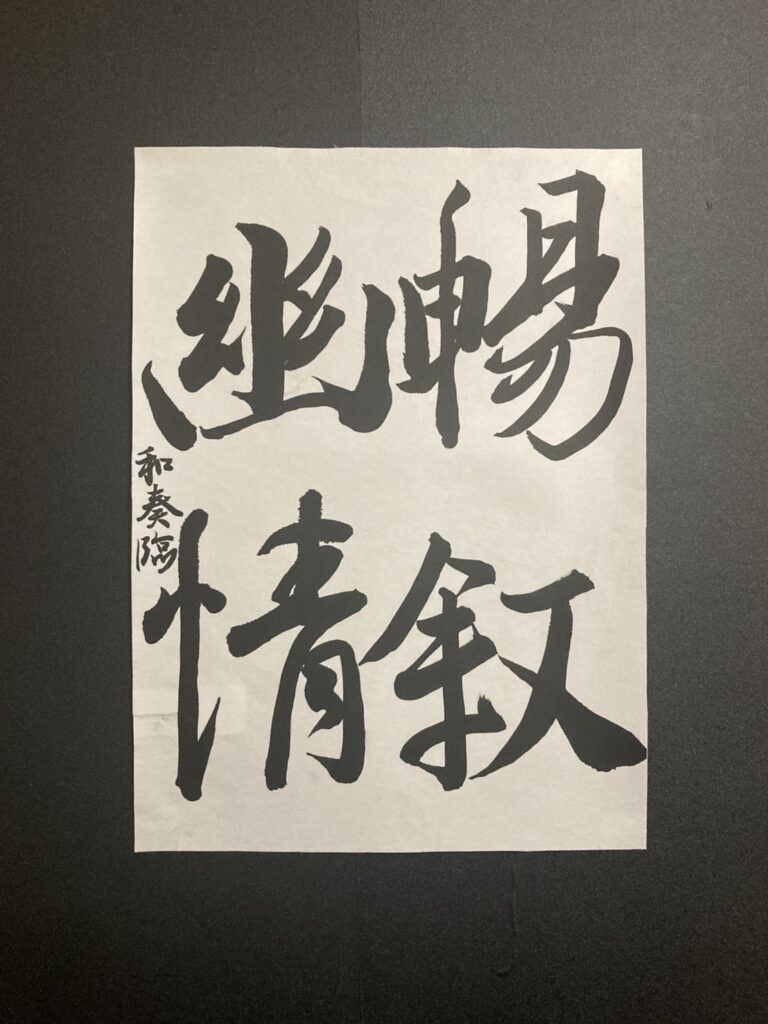 暢叙
幽情
和奏臨